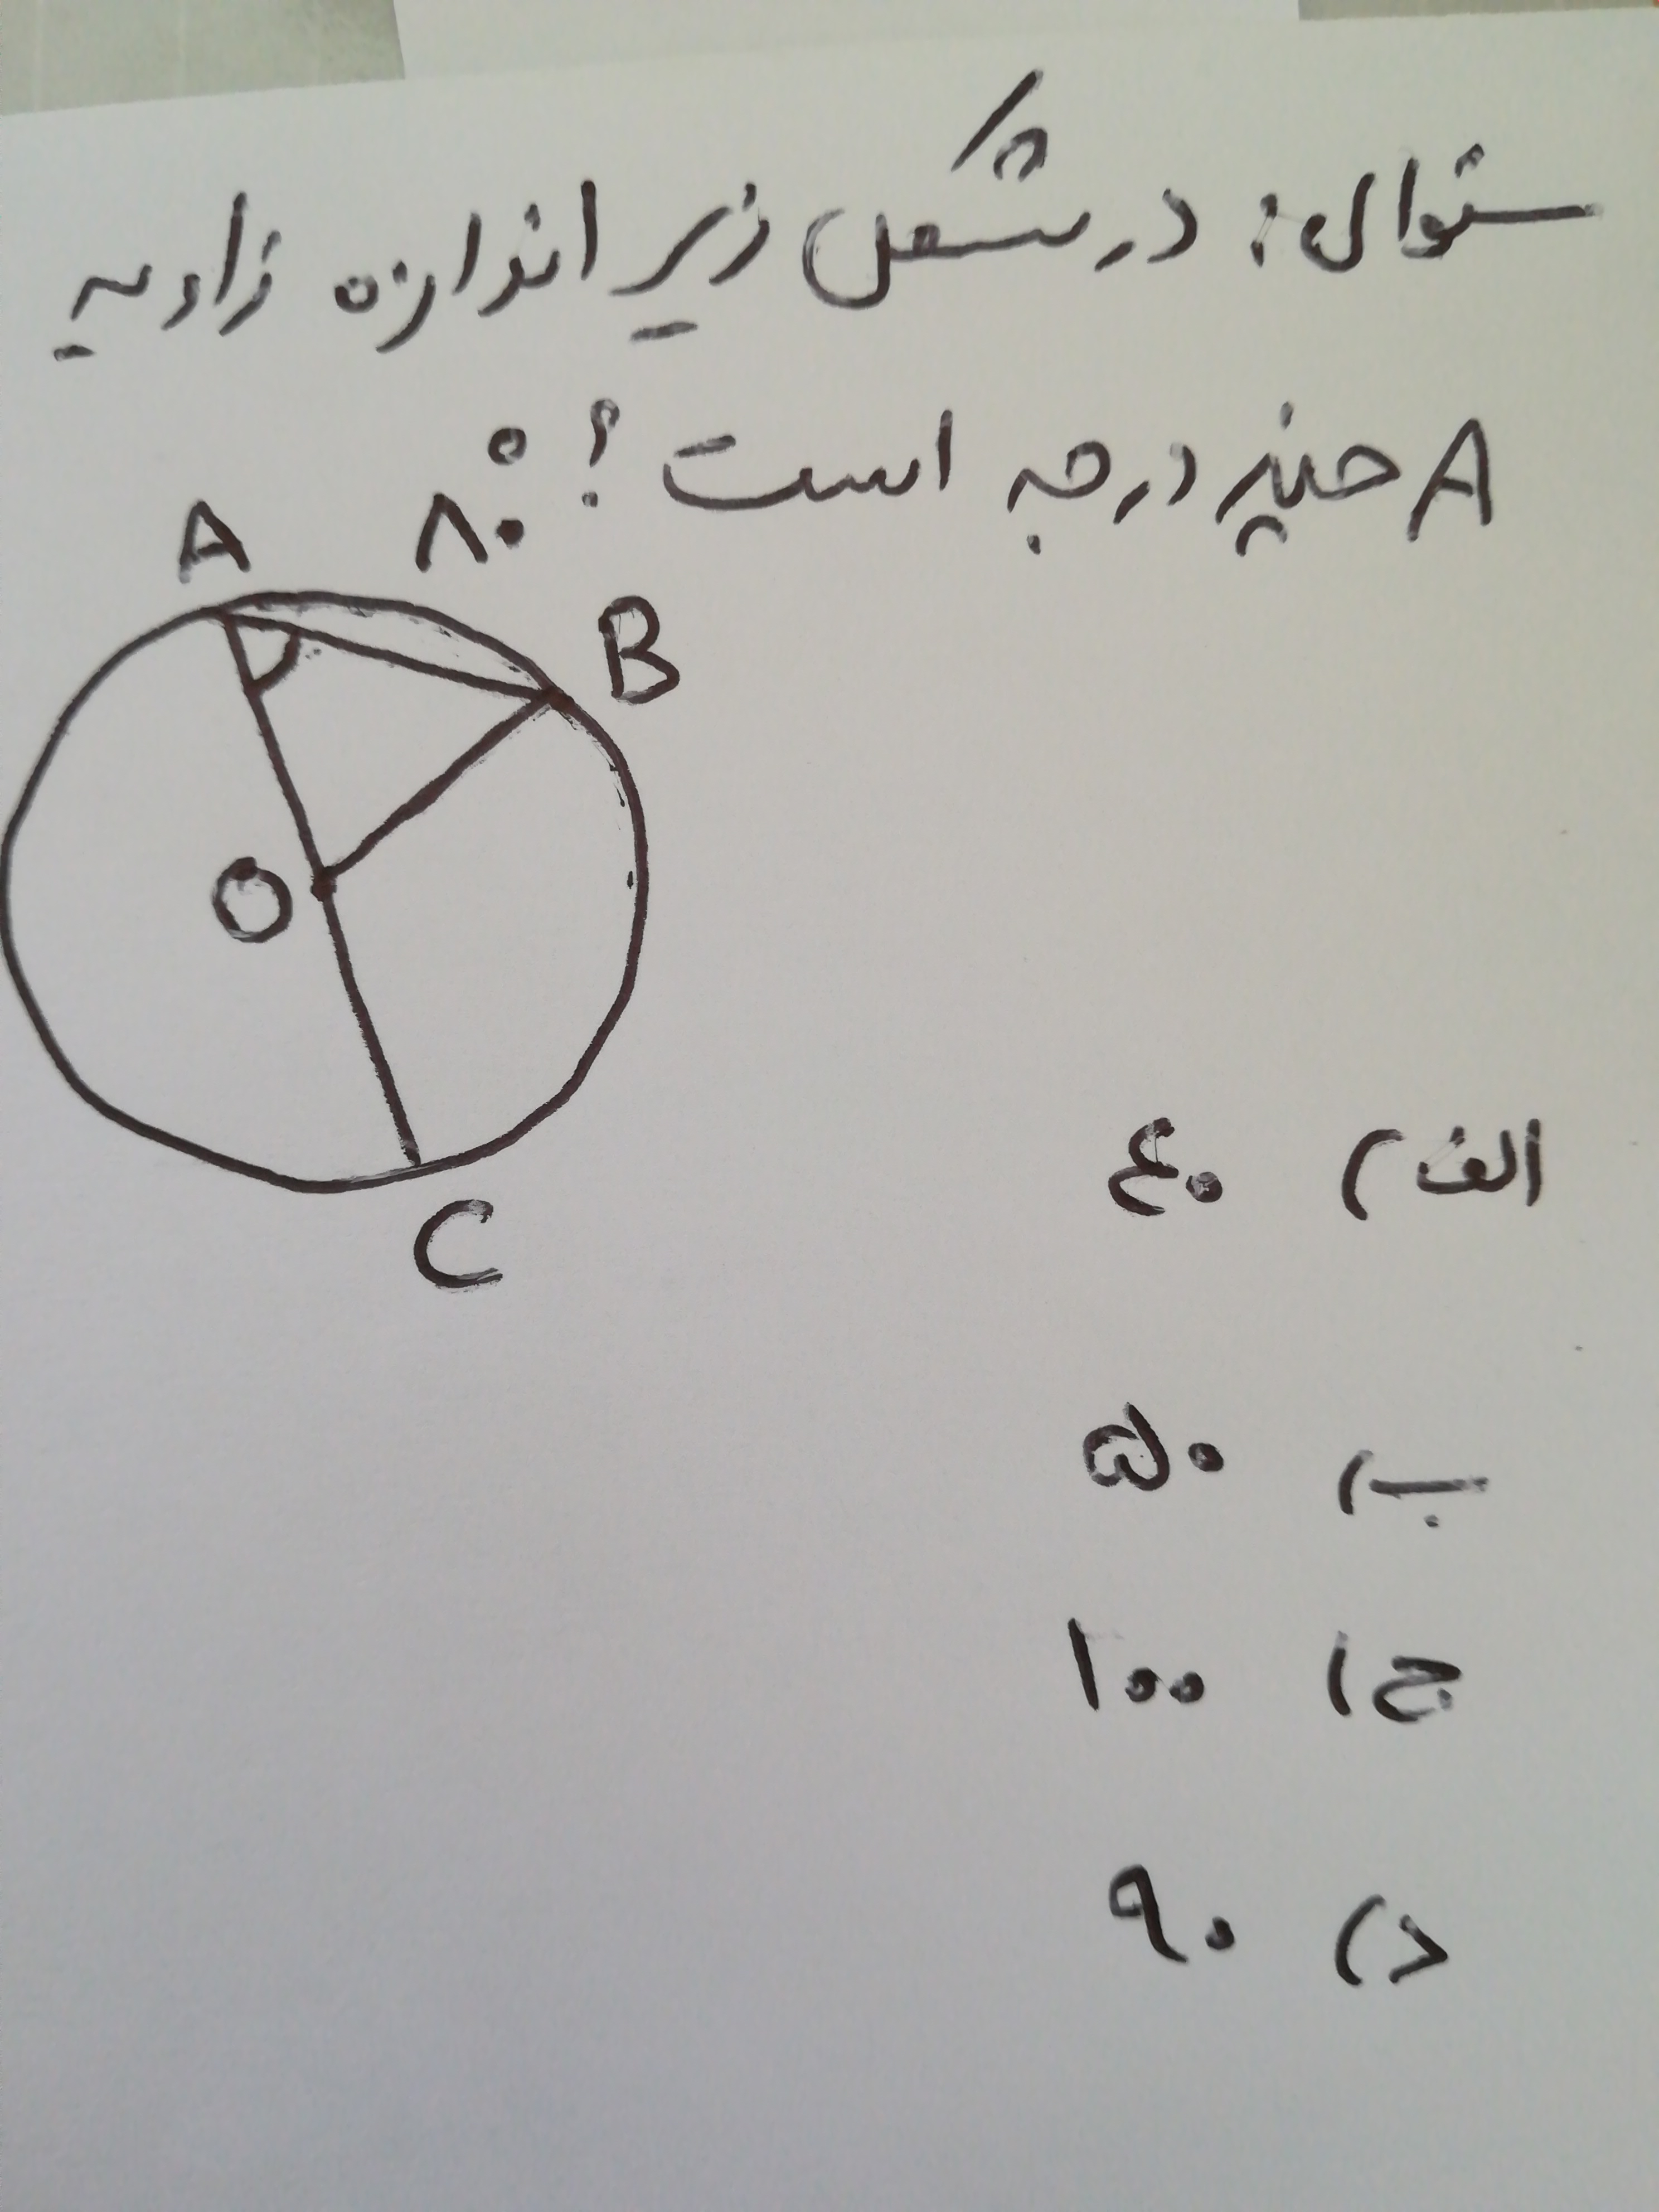 سئوال: در شکل زیر اندازه زاویه
A چند درجه است؟
۸۰°
A
B
O
C
الف) ۴۰
ب) ۵۰
ج) ۱۰۰
د) ۹۰